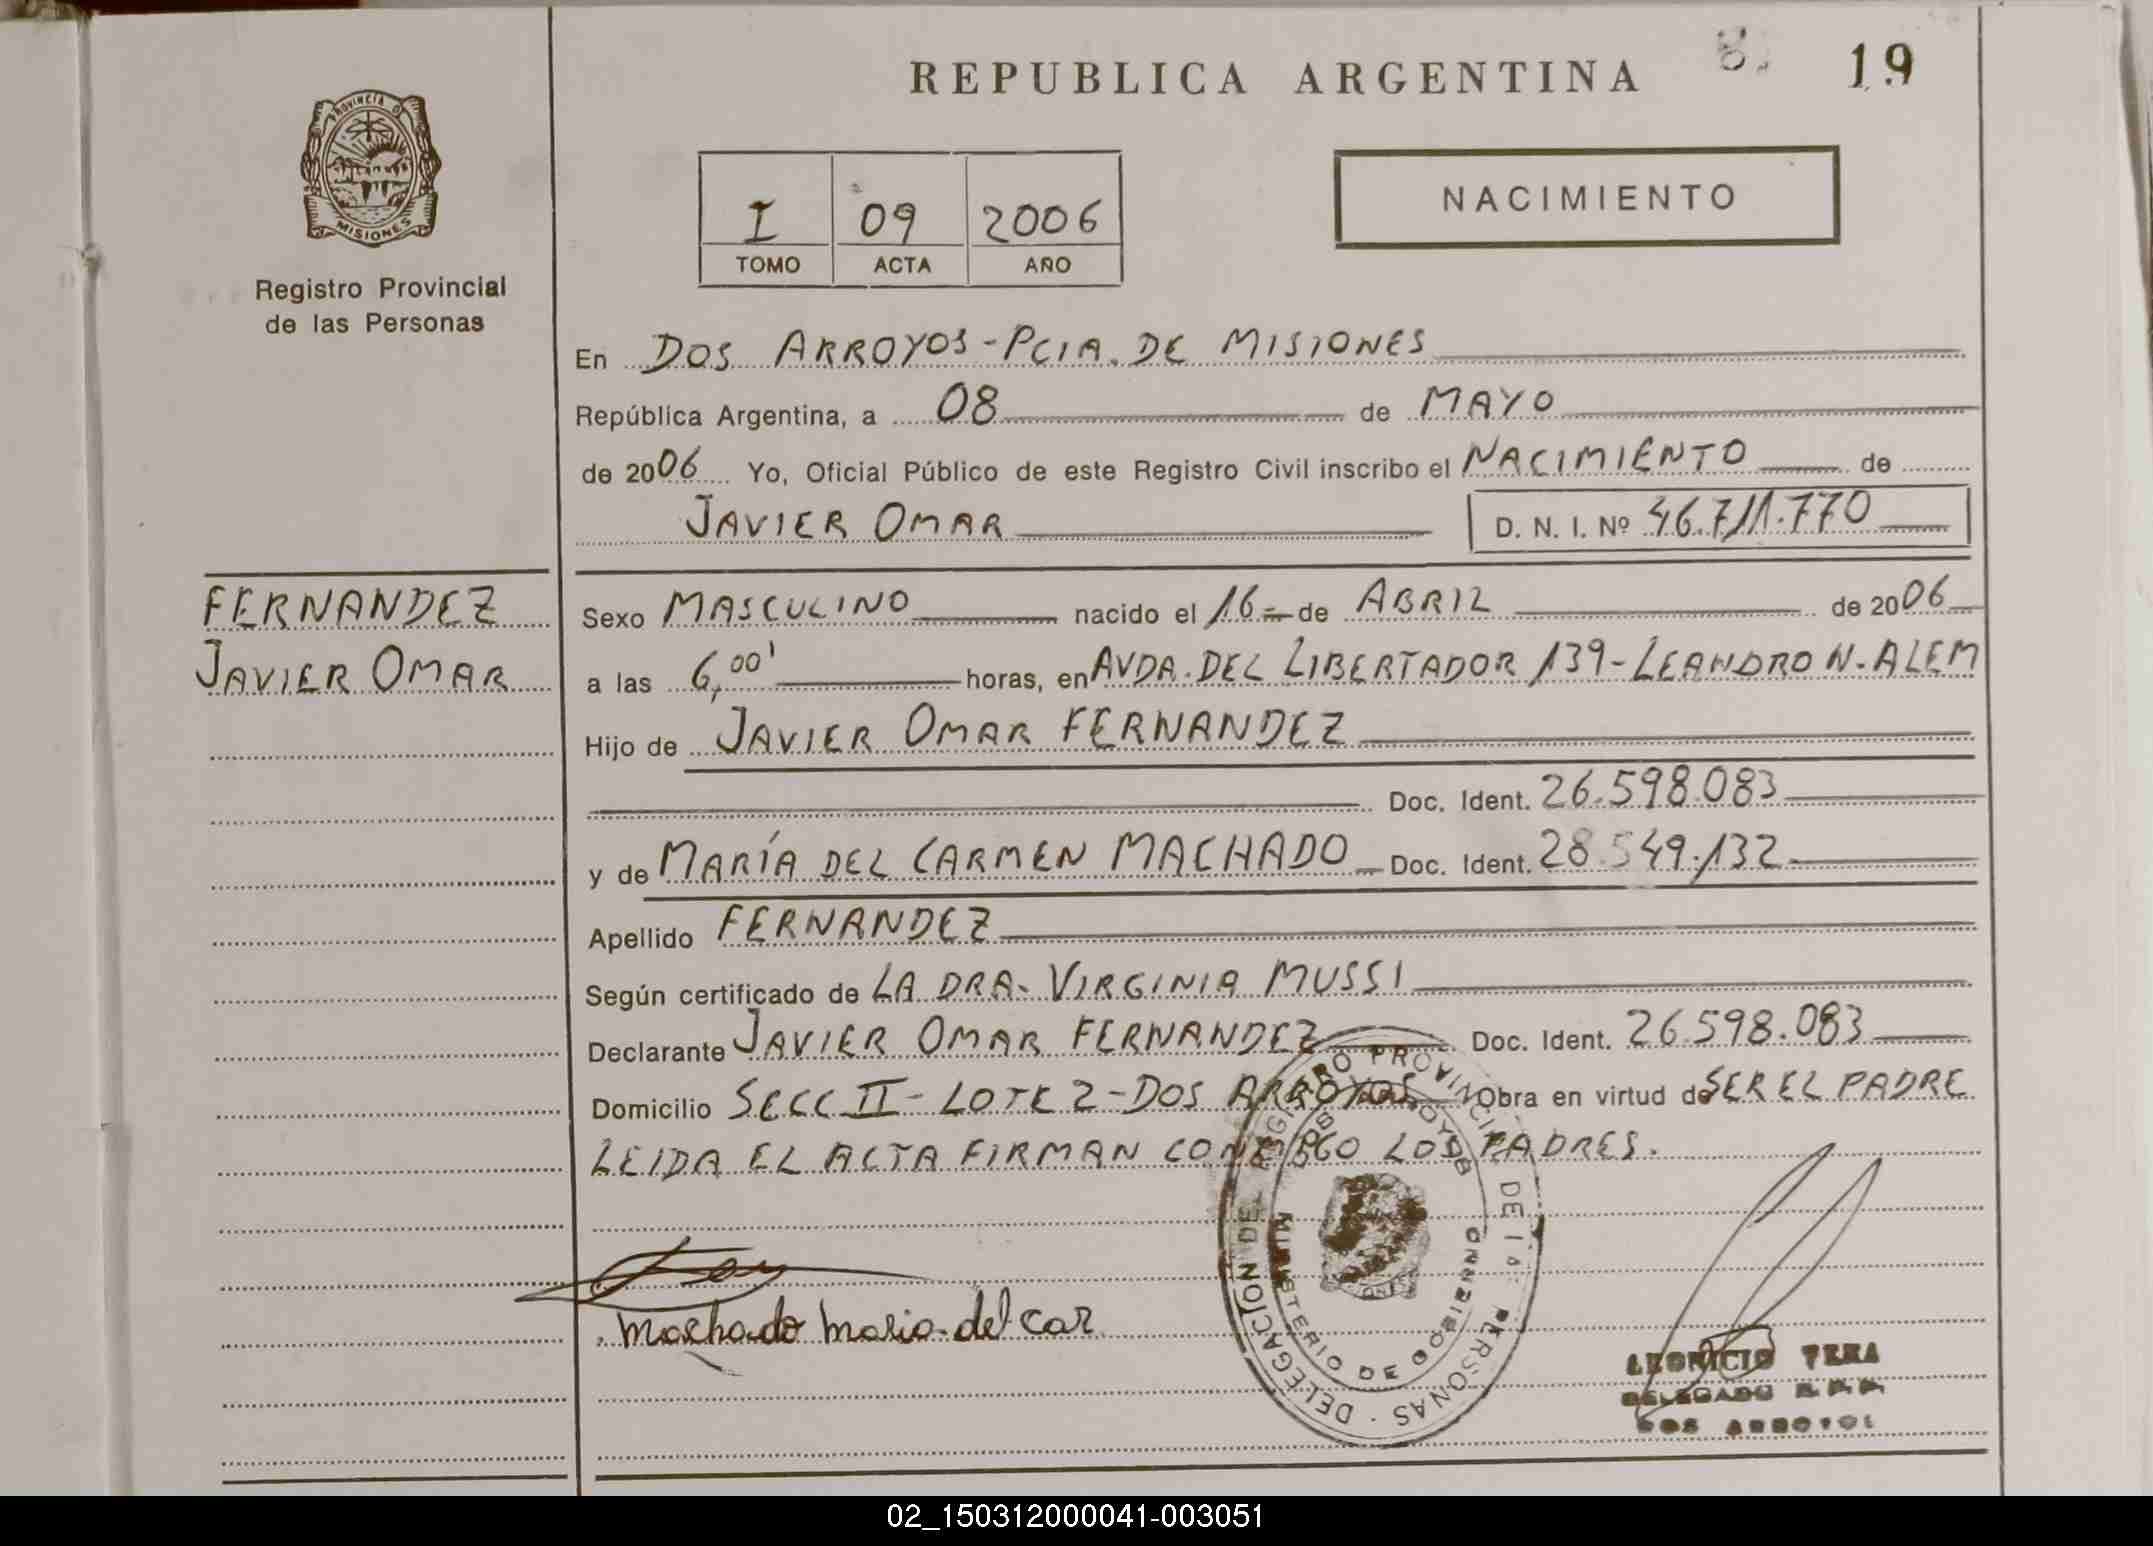 REPUBLICA ARGENTINA
8. 19
PROVINCIA D MISIONES
Registro Provincial
de las Personas
I 09 2006
TOMO ACTA AÑO
NACIMIENTO
En DOS ARROYOS-PCIA. DE MISIONES
República Argentina, a 08 de MAYO
de 2006 Yo, Oficial Público de este Registro Civil inscribo el NACIMIENTO de
JAVIER OMAR D. N. I. Nº 46.711.770
FERNANDEZ
JAVIER OMAR
Sexo MASCULINO nacido el 16 = de ABRIL de 2006
a las 6,00' horas, en AVDA. DEL LIBERTADOR 139-LEANDRO N. ALEM
Hijo de JAVIER OMAR FERNANDEZ
Doc. Ident. 26.598.083
y de MARÍA DEL CARMEN MACHADO Doc. Ident. 28.549.132
Apellido FERNANDEZ
Según certificado de LA DRA. VIRGINIA MUSSI
Declarante JAVIER OMAR FERNANDEZ Doc. Ident. 26.598.083
Domicilio SECC II - LOTE 2-DOS ARROYOS Obra en virtud de SER EL PADRE
LEIDA EL ACTA FIRMAN CONMIGO LOS PADRES.
REGISTRO PROVINCIAL DE LAS PERSONAS · DELEGACION DE
DOS ARROYOS
MINISTERIO DE GOBIERNO
Machado Maria del Car
LEONICIO
DELEGADO R.P.P.
DOS ARROYOS
02_150312000041-003051